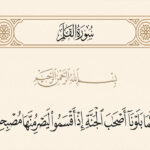 سُورَةُ القَلَمِ
بِسْمِ اللَّهِ الرَّحْمَنِ الرَّحِيمِ
بَلَوْنَا أَصْحَابَ الْجَنَّةِ إِذْ أَقْسَمُوا لَيَصْرِمُنَّهَا